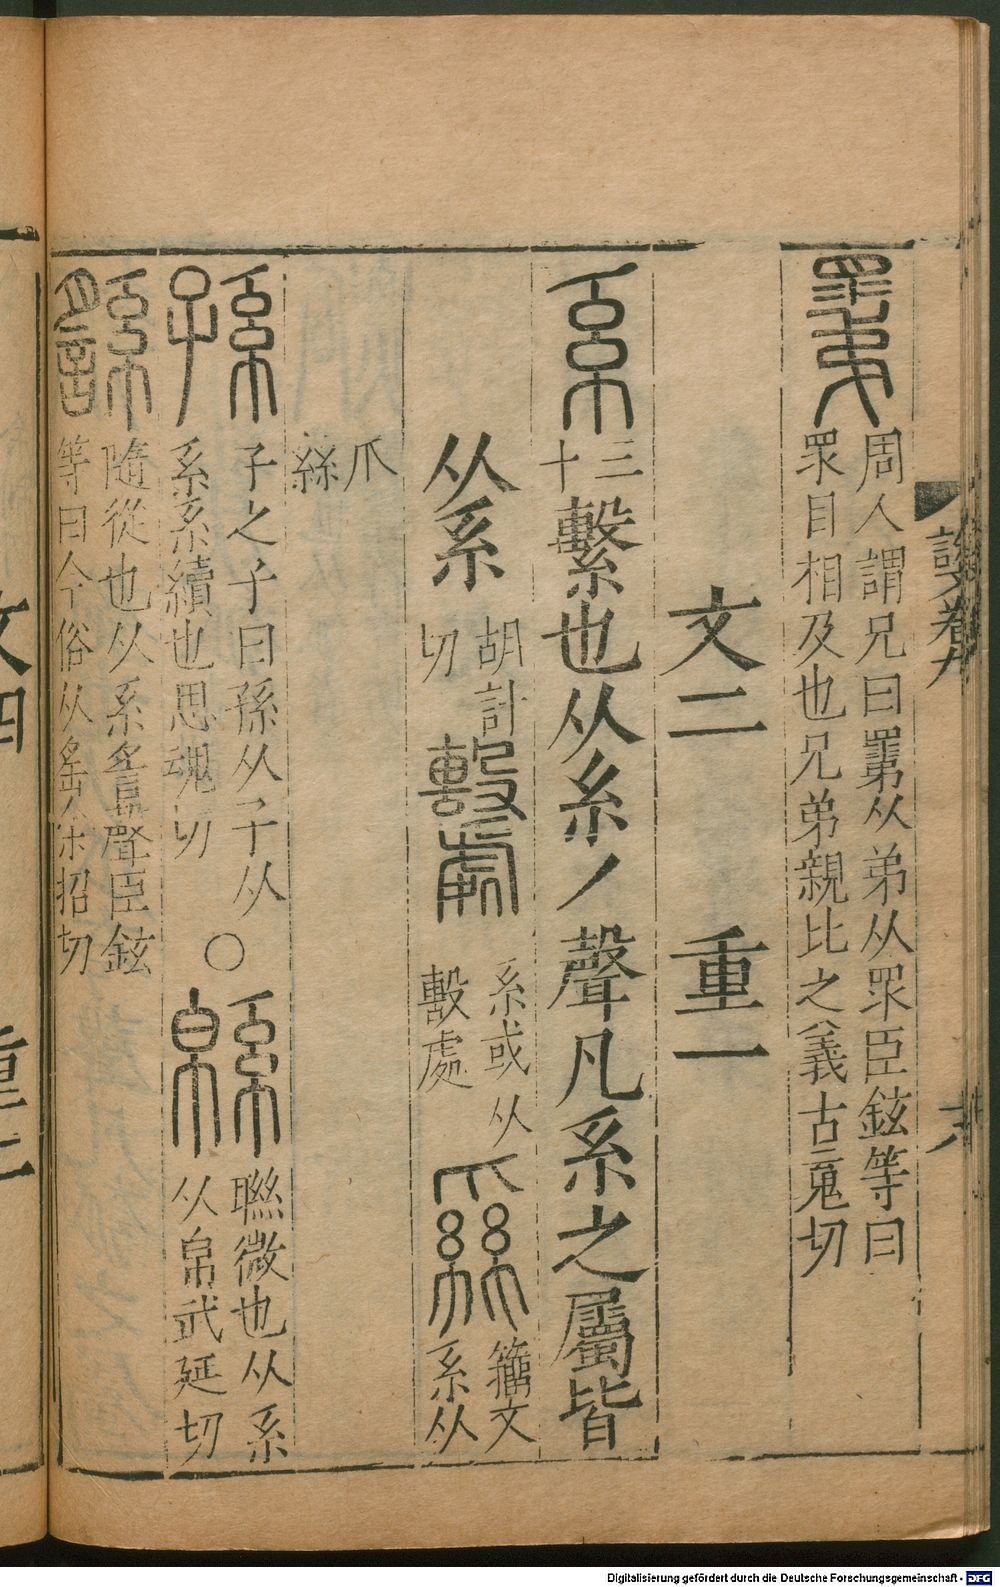 𦋺周人謂兄曰𦋺从弟从眔臣鉉等曰
眔目相及也兄弟親比之義古䰟切
文二 重一
系十三繫也从糸丿聲凡系之屬皆
从系胡計切𣫦系或从𣫦處𦃟籒文系从
爪絲
孫子之子曰孫从子从
系系續也思魂切○緜聯微也从系
从帛武延切
䌛隨從也从系䚻聲臣鉉
等曰今俗从䍃余招切
說文卷九
六
文四
重二
Digitalisierung gefördert durch die Deutsche Forschungsgemeinschaft - DFG